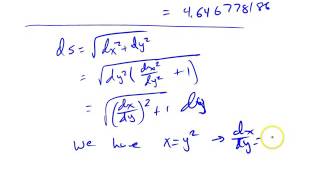 = 4.646778186
ds = √(dx² + dy²)
= √(dy²(dx²/dy² + 1))
= √((dx/dy)² + 1) dy
We have x = y² → dx/dy =